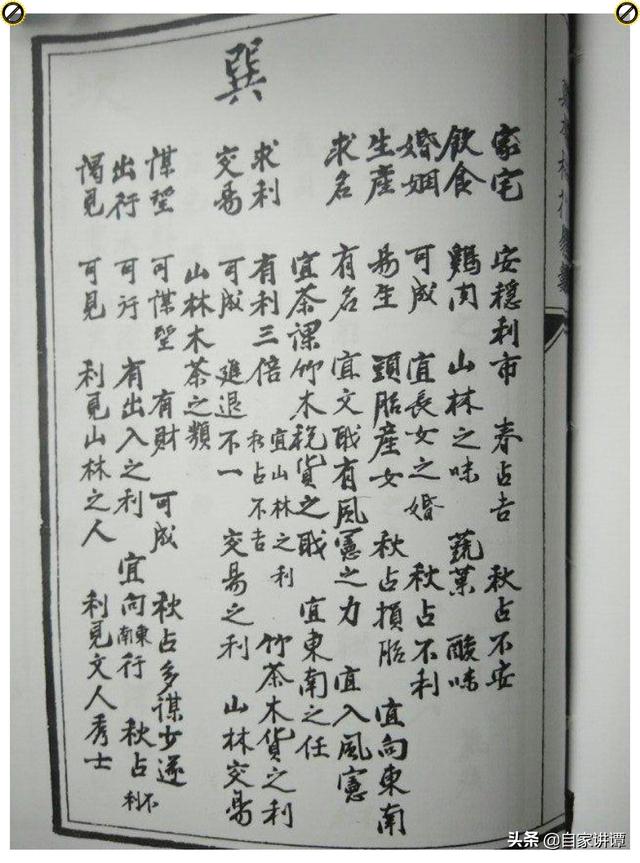 巽
家宅 安穩利市 春占吉 秋占不安
飲食 鷄肉 山林之味 蔬菓 酸味
婚姻 可成 宜長女之婚 秋占不利
生産 易生 頭胎産女 秋占損胎 宜向東南
求名 有名 宜文職有風憲之力 宜入風憲
宜茶課竹木稅貨之職 宜東南之任
求利 有利三倍 宜山林之利 秋占不吉 竹茶木貨之利
交易 可成 進退不一 交易之利 山林交易
山林木茶之類
謀望 可謀望 有財 可成 秋占多謀少遂
出行 可行 有出入之利 宜向東南行 秋占不利
謁見 可見 利見山林之人 利見文人秀士
头条 @自家讲谭